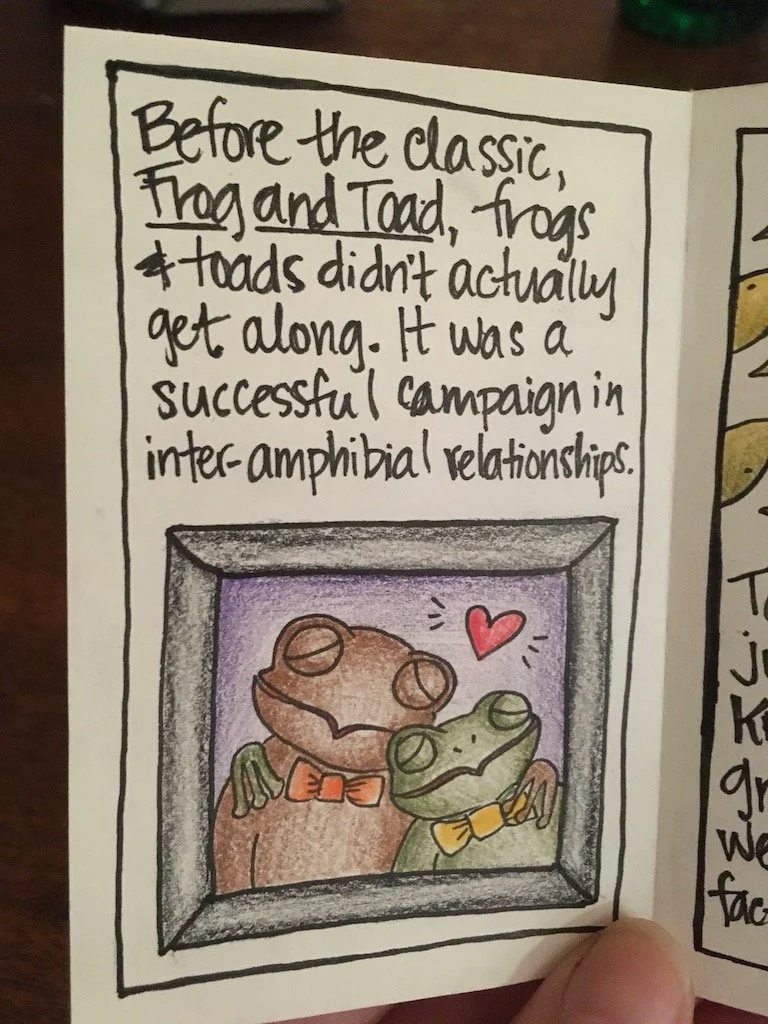 Before the classic,
Frog and Toad, frogs
& toads didn't actually
get along. It was a
successful campaign in
inter-amphibial relationships.